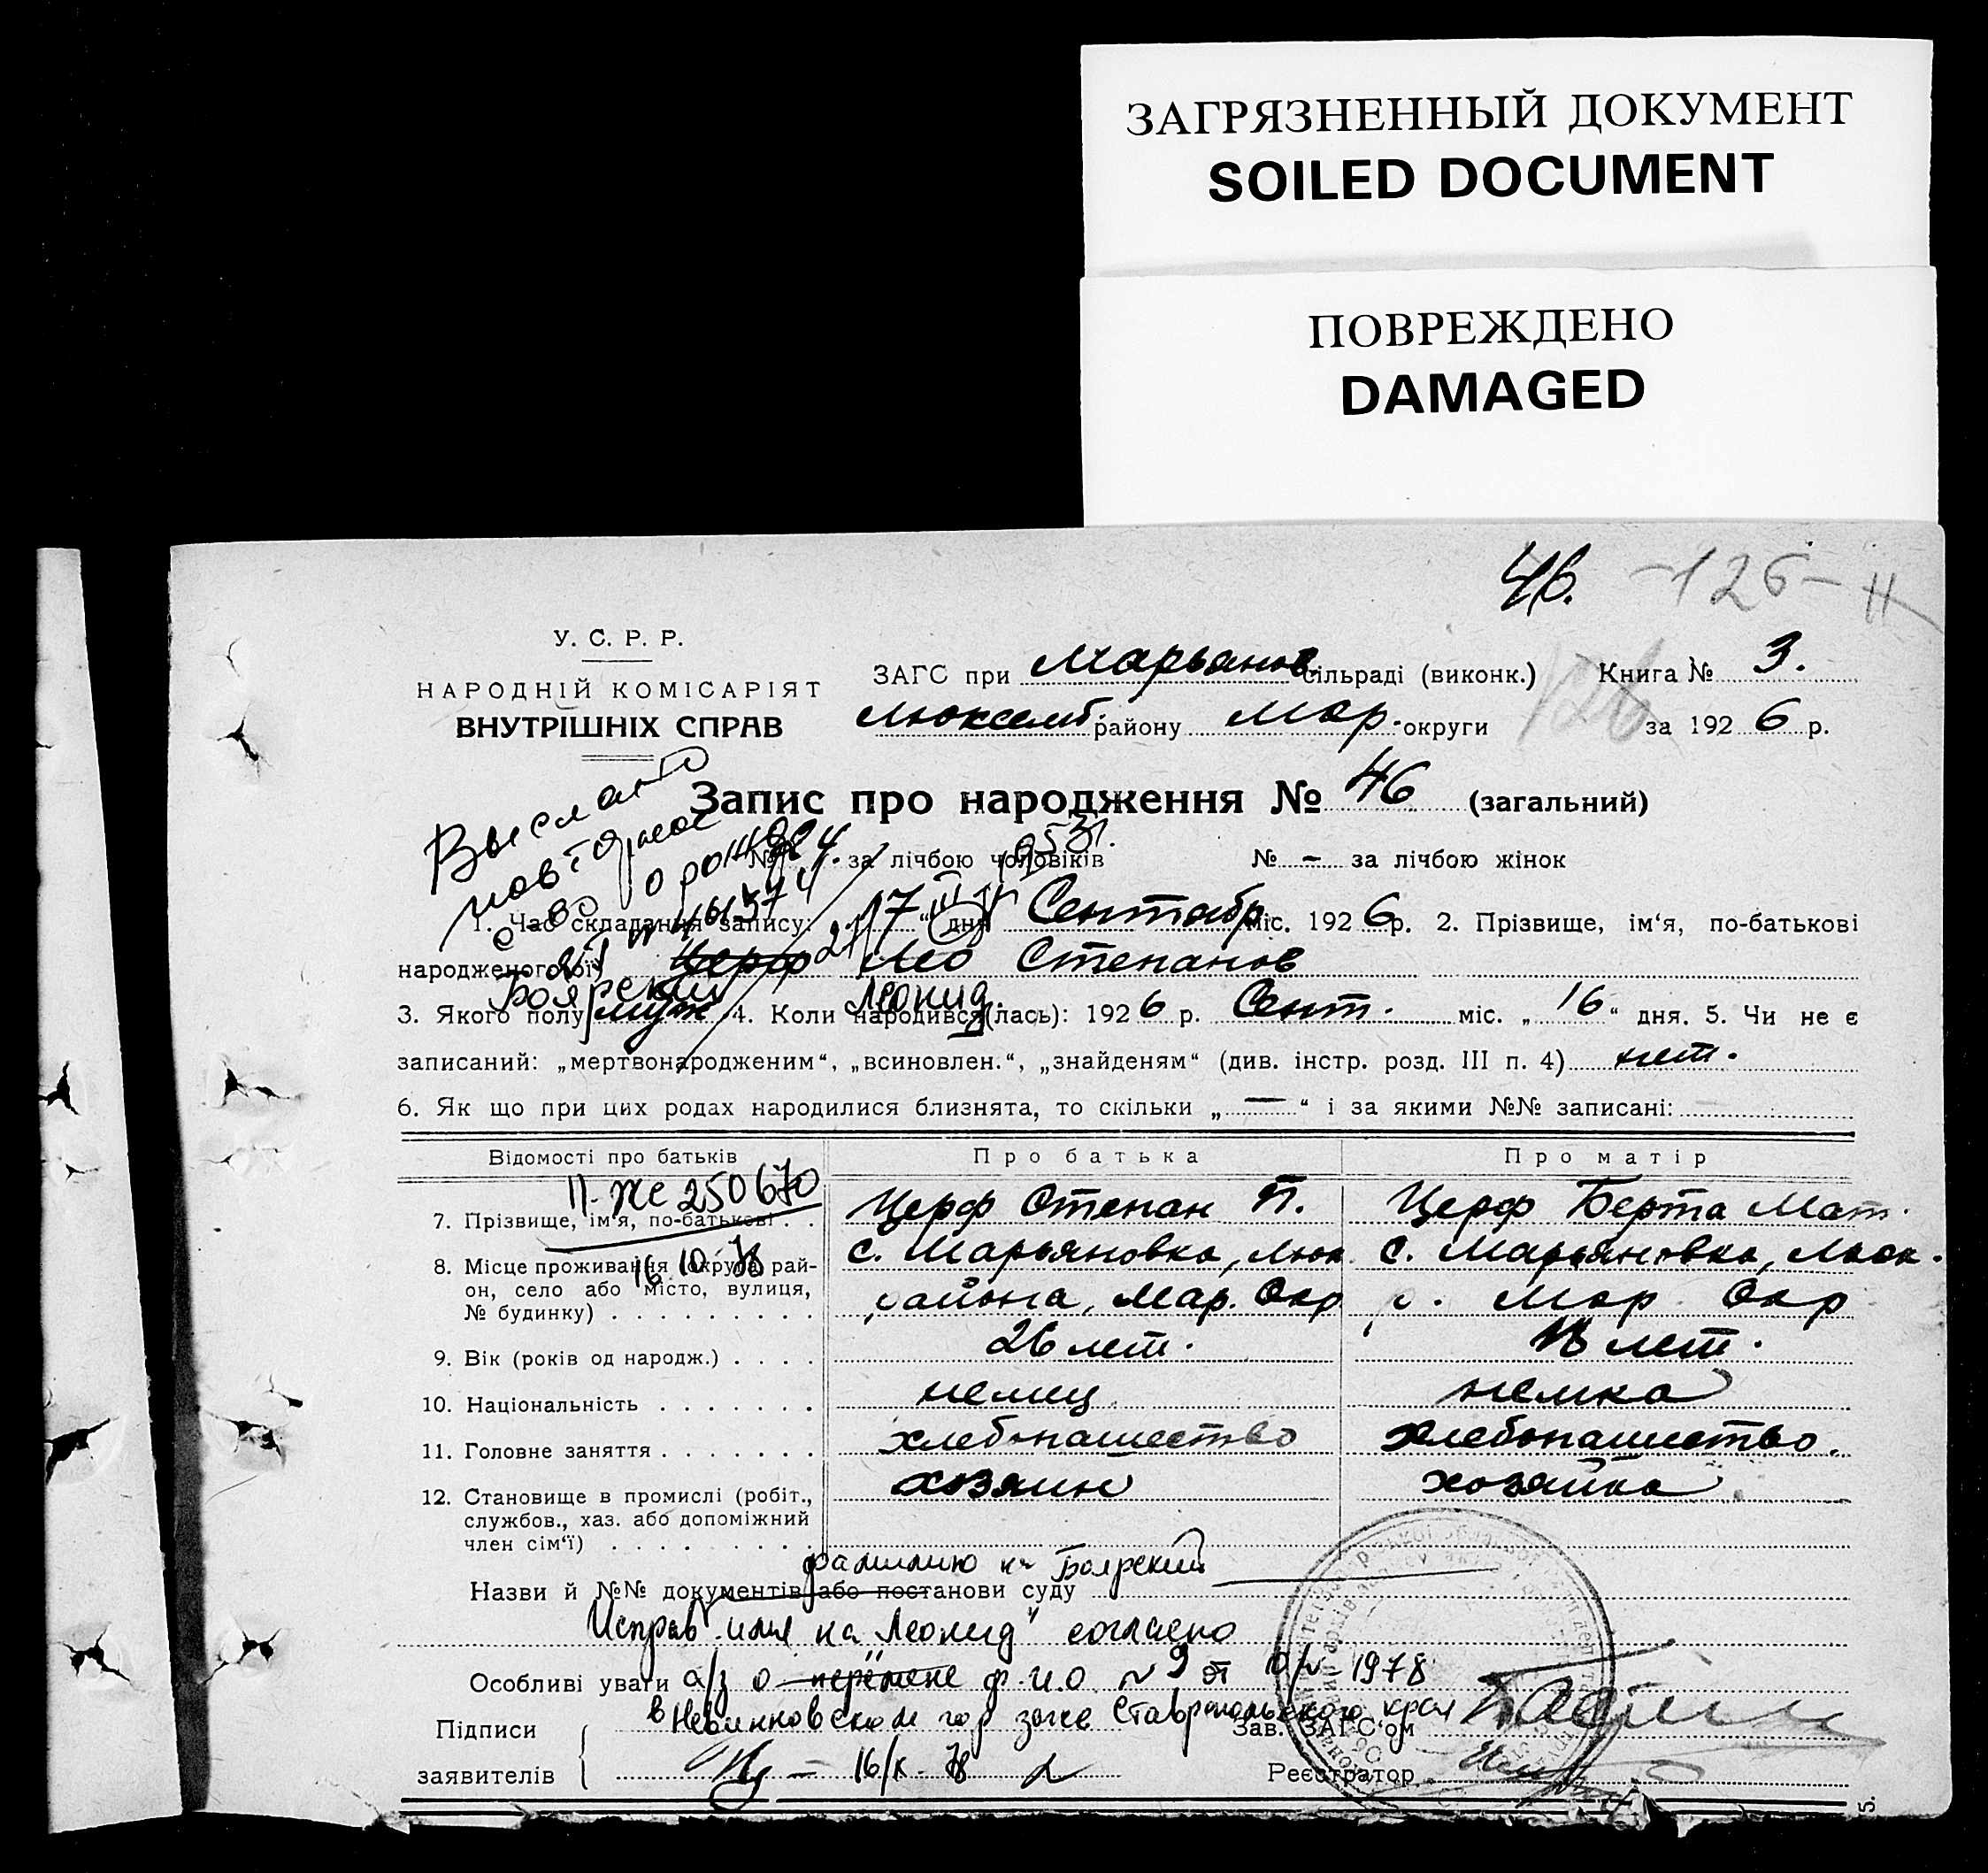 ЗАГРЯЗНЕННЫЙ ДОКУМЕНТ
SOILED DOCUMENT
ПОВРЕЖДЕНО
DAMAGED
46. -126- 11
У. С. Р. Р.
НАРОДНІЙ КОМІСАРІЯТ
ВНУТРІШНІХ СПРАВ
ЗАГС при Марьянов. сільраді (виконк.) Книга № 3.
Люксемб. району Мар. округи 126 за 1926 р.
Выслано
повторное
с-во о рожд
Запис про народження № 46 (загальний)
№ 24. за лічбою чоловіків № — за лічбою жінок
1. Час складання запису: 17 „ дня Сентабр міс. 1926 р. 2. Прізвище, ім‘я, по-батькові
народженого(ої) Церф Лео Степанов
Боярский Леонид.
3. Якого полу муж 4. Коли народився(лась): 1926 р. Сент. міс. „16“ дня. 5. Чи не є
записаний: „мертвонародженим“, „всиновлен.“, „знайденям“ (див. інстр. розд. III п. 4) нет.
6. Як що при цих родах народилися близнята, то скільки „—“ і за якими №№ записані:
Відомості про батьків Про батька Про матір
II-ЖС 250670
7. Прізвище, ім‘я, по-батькові . . Церф Степан П. Церф Берта Мат.
16.10.78
8. Місце проживання (округа, рай- с. Марьяновка, Люк. с. Марьяновка, Люк.
он, село або місто, вулиця, района, Мар. Окр р. Мар. Окр
№ будинку) . . . . . . . . .
9. Вік (років од народж.) . . . . 26 лет. 18 лет.
10. Національність . . . . . . . немиц немка
11. Головне заняття . . . . . . . хлебопашество хлебопашество.
12. Становище в промислі (робіт., хозяин хозяйка
службов., хаз. або допоміжний
член сім‘ї) . . . . . . . . .
фамилию на Боярский
Назви й №№ документів або постанови суду
Исправ. имя на „Леонид“ согласно
Особливі уваги а/з о перемене ф.и.о. № 9 от 10/V 1978
в Невинновском гор загсе Ставропольского края
Підписи Зав. ЗАГС‘ом
заявителів 16/X-78 Реєстратор
5.